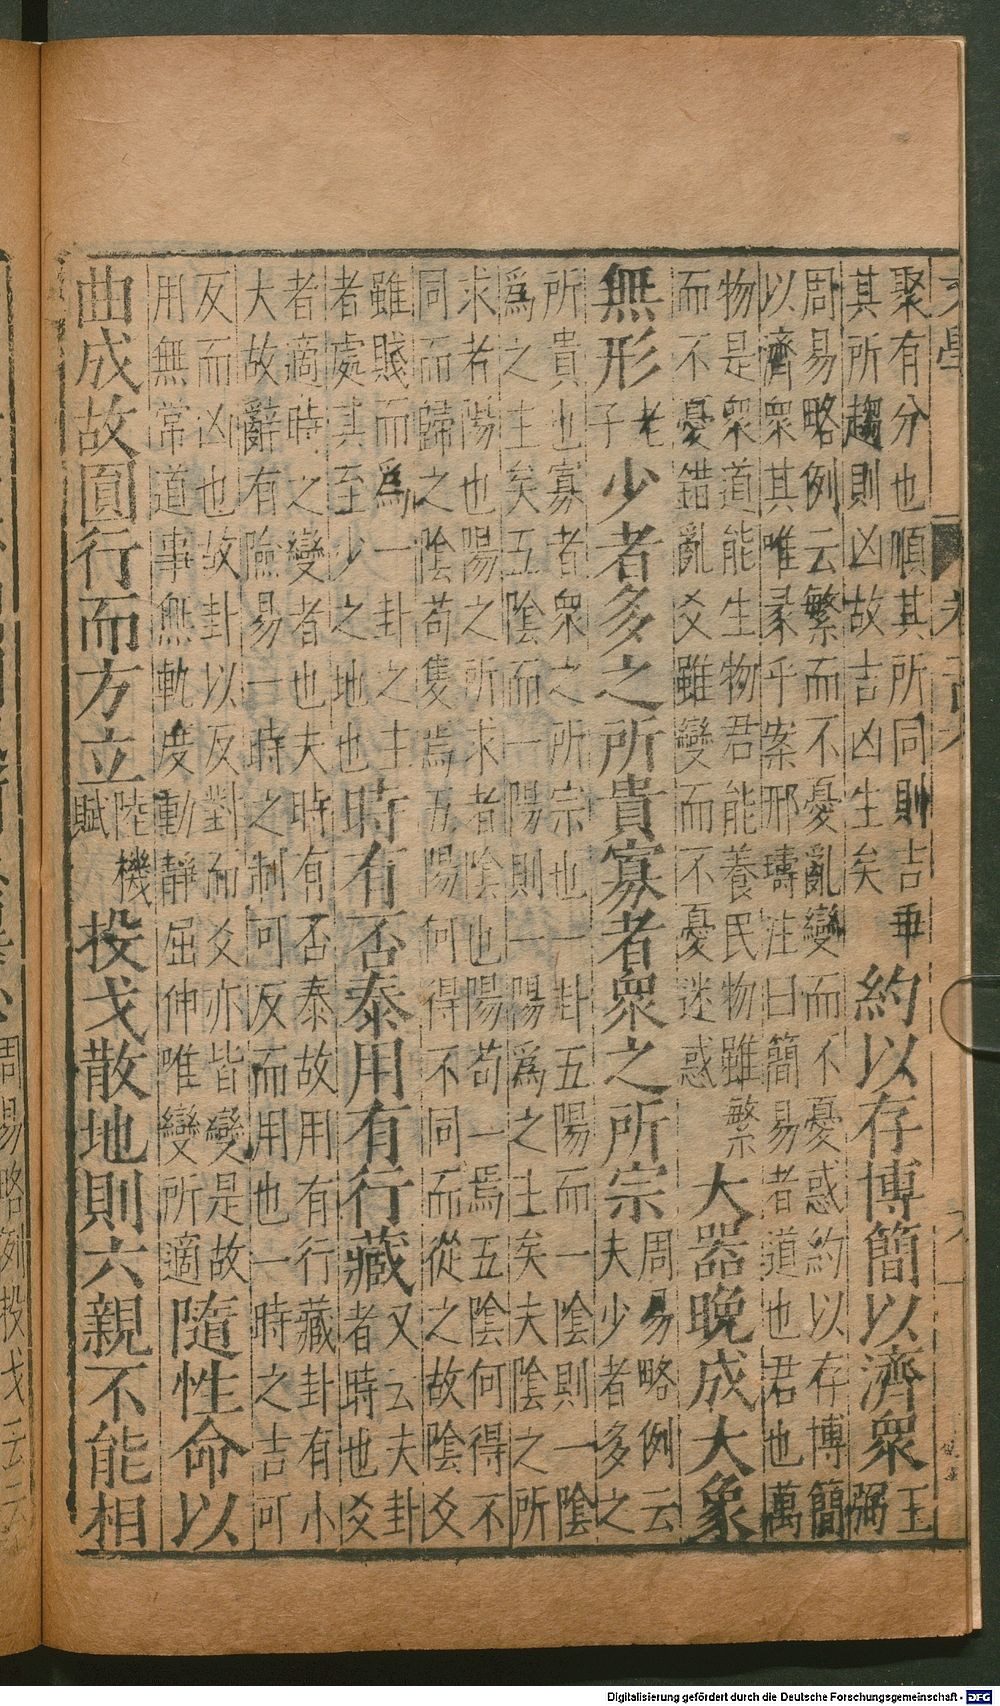 聚有分也順其所同則吉乖
其所趨則凶故吉凶生矣
約以存博簡以濟衆
王
弼
周易略例云繁而不憂亂變而不憂惑約以存博簡
以濟衆其唯彖乎案邢璹注曰簡易者道也君也萬
物是衆道能生物君能養民物雖繁
而不憂錯亂爻雖變而不憂迷惑
大器晚成大象
無形
老
子
少者多之所貴寡者衆之所宗
周易略例云
夫少者多之
所貴也寡者衆之所宗也一卦五陽而一陰則一陰
爲之主矣五陰而一陽則一陽爲之主矣夫陰之所
求者陽也陽之所求者陰也陽苟一焉五陰何得不
同而歸之陰苟隻焉五陽何得不同而從之故陰爻
雖賤而爲一卦之主
者處其至少之地也
時有否泰用有行藏
又云夫卦
者時也爻
者適時之變者也夫時有否泰故用有行藏卦有小
大故辭有險易一時之制可反而用也一時之吉可
反而凶也故卦以反對而爻亦皆變是故
用無常道事無軌度動靜屈伸唯變所適
隨性命以
曲成故圓行而方立
陸機
賦
投戈散地則六親不能相
周易略例投戈云云
Digitalisierung gefördert durch die Deutsche Forschungsgemeinschaft - DFG